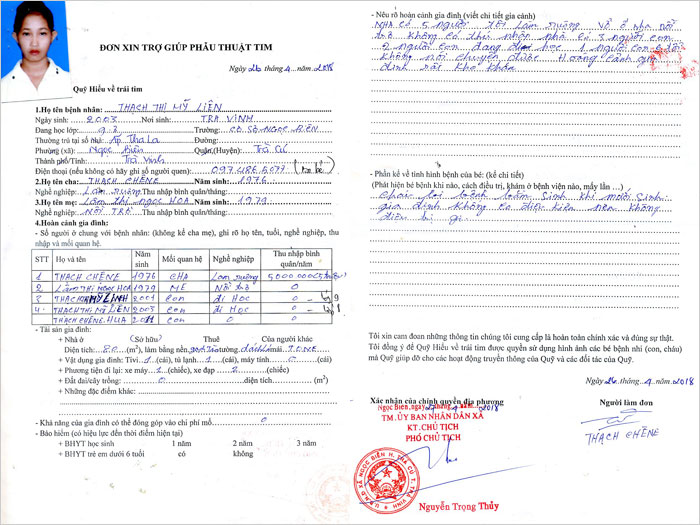 ĐƠN XIN TRỢ GIÚP PHẪU THUẬT TIM
Ngày 26 tháng 4 năm 2018
Quỹ Hiểu về trái tim
1.Họ tên bệnh nhân: THẠCH THỊ MỸ LIÊN
Ngày sinh: 2003 Nơi sinh: TRÀ VINH
Đang học lớp: 9.2 Trường: CƠ SỞ NGỌC BIÊN
Thường trú tại số nhà: ấp Tha La Đường:
Phường (xã): Ngọc Biên Quận (Huyện): Trà Cú
Thành phố/Tỉnh: Trà Vinh
Điện thoại (nếu không có hãy ghi số người quen):
2.Họ tên cha: THẠCH CHÊNE Năm sinh: 1976
Nghề nghiệp: Làm ruộng Thu nhập bình quân/tháng:
3.Họ tên mẹ: Lâm Thị Ngọc HOA Năm sinh: 1979
Nghề nghiệp: NỘI TRỢ Thu nhập bình quân/tháng:
4.Hoàn cảnh gia đình:
- Số người ở chung với bệnh nhân: (không kể cha mẹ), ghi rõ họ tên, tuổi, nghề nghiệp, thu
nhập và mối quan hệ
STT Họ và tên Năm sinh Mối quan hệ Nghề nghiệp Thu nhập bình quân/năm
1 THẠCH CHÊNE 1976 CHA Làm ruộng 5000000
2 LÂM THỊ NGỌC HOA 1979 MẸ Nội trợ 0
3 THẠCH MỸ LINH 2001 con đi Học 0
4 THẠCH THỊ MỸ LIÊN 2003 con đi Học 0
THẠCH CHÊNE HUA 2011 con 0 0
- Tài sản gia đình:
+ Nhà ở Sở hữu? Thuê Của người khác
Diện tích: 80 (m²), làm bằng nền tường mái TONE
+ Vật dụng gia đình: Tivi 1 (cái), tủ lạnh 1 (cái), máy tính 0 (cái)
+ Phương tiện đi lại: xe máy 1 (chiếc), xe đạp 2 (chiếc)
+ Đất đai/cây trồng: 0 diện tích (m²)
+ Những đặc điểm khác:
- Khả năng của gia đình có thể đóng góp vào chi phí mổ: 0
- Bảo hiểm (có hiệu lực đến thời điểm hiện tại)
+ BHYT học sinh 1 năm 2 năm 3 năm
+ BHYT trẻ em dưới 6 tuổi có không
- Nêu rõ hoàn cảnh gia đình (viết chi tiết gia cảnh)
NHÀ có 5 người tôi Làm ruộng vợ ở nhà nội
trợ không có thu nhập nhà có 3 người con
2 người con đang đi học 1 người con
không nói chuyện được Hoàng cảnh gia
đình rất khó khăn
- Phần kể về tình hình bệnh của bé: (kể chi tiết)
(Phát hiện bé bệnh khi nào, cách điều trị, khám ở bệnh viện nào, mấy lần ...)
bệnh bẩm Sinh khi mới Sinh
gia đình không có điều kiện nên không
điều trị gì
Tôi xin cam đoan những thông tin chúng tôi cung cấp là hoàn toàn chính xác và đúng sự thật.
Tôi đồng ý để Quỹ Hiểu về trái tim được quyền sử dụng hình ảnh các bé bệnh nhi (con, cháu)
mà Quỹ giúp đỡ cho các hoạt động truyền thông của Quỹ và các đối tác của Quỹ.
Ngày 26 tháng 4 năm 2018
Xác nhận của chính quyền địa phương
Người làm đơn
Ngọc Biên, ngày tháng 4 năm 2018
TM. ỦY BAN NHÂN DÂN XÃ
KT. CHỦ TỊCH
PHÓ CHỦ TỊCH
THẠCH CHÊNE
U.B.N.D XÃ NGỌC BIÊN H. TRÀ CÚ T. TRÀ VINH
Nguyễn Trọng Thủy